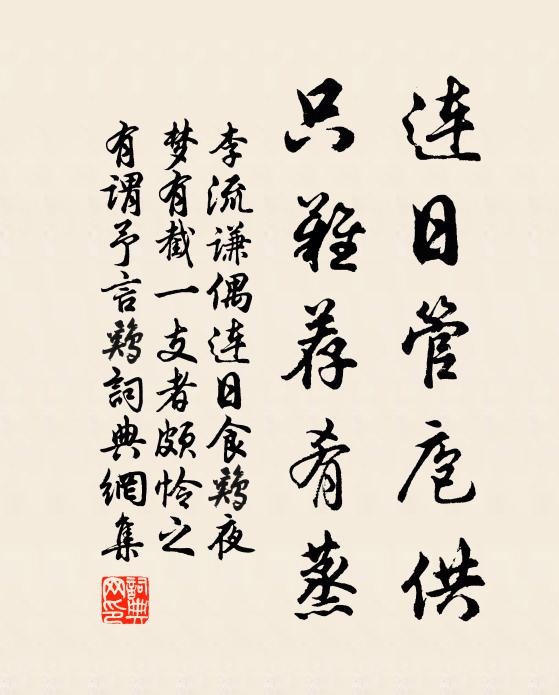 连日管庖供
只难荐肴蒸
李流谦偶连日食鸡夜
梦有截一支者颇怜之
有谓予言鸡詞典網集
詞典網印